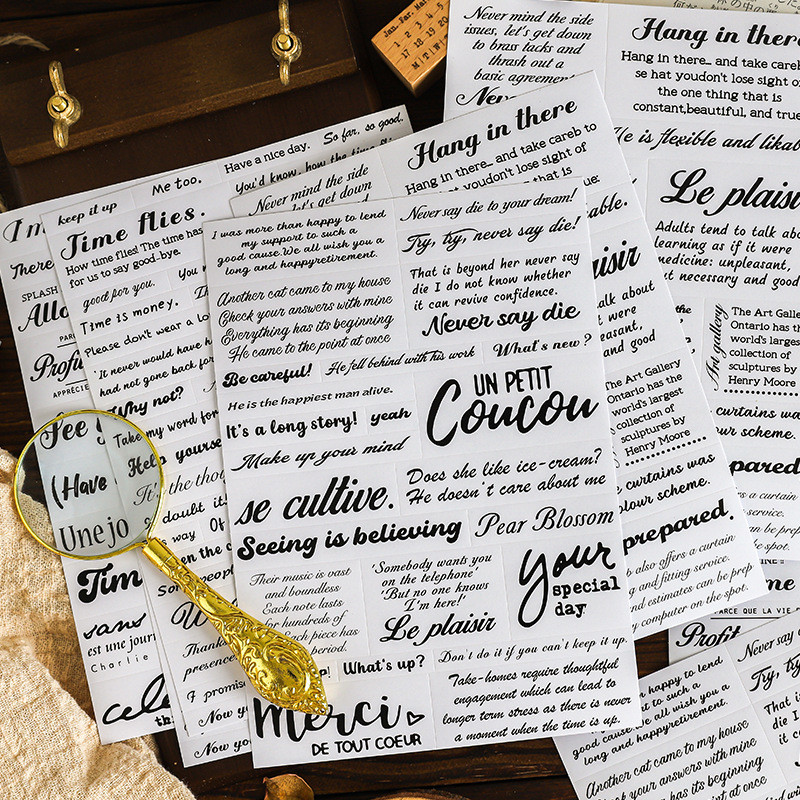 Jan. Feb. Mar.
Never mind the side
issues, let's get down
to brass tacks and
thrash out a
basic agreement
Hang in there
Hang in there... and take careb
se hat youdon't lose sight of
the one thing that is
constant,beautiful, and true
He is flexible and likable.
Le plaisir
Adults tend to talk about
learning as if it were
medicine: unpleasant,
but necessary and good
Art gallery
The Art Gallery
Ontario has the
world's largest
collection of
sculptures by
Henry Moore
curtains was
colour scheme.
prepared
s a curtain
service.
can be prep
the spot.
Hang in there
Hang in there... and take careb to
youdon't lose sight of
Never mind the side
let's get down
So far, so good.
Have a nice day.
You'd know, how the time
Me too.
keep it up
Time flies.
How time flies! The time has
for us to say good-bye.
good for you.
Time is money.
Please don't wear a lo
It never would have h
had not gone back for
Why not?
Take my word for
Help yourself
It's the thou
doubt it
way. Of
Even the
Some people
W
Thank
presence
I promis
Now you
Now you
I'm
There
SPLASH
Allo
PAR
Profi
APPRÉCIE
See y
(Have
Une jo
Time
sans
est une jour
Charlie
cele
I was more than happy to lend
my support to such a
good cause.We all wish you a
long and happyretirement.
Never say die to your dream!
Try, try, never say die!
Another cat came to my house
Check your answers with mine
Everything has its beginning
He came to the point at once
That is beyond her never say
die I do not know whether
it can revive confidence.
Never say die
Be careful!
He fell behind with his work
What's new ?
He is the happiest man alive.
It's a long story! yeah
Make up your mind
UN PETIT
Coucou
se cultive.
Does she like ice-cream?
He doesn't care about me
Seeing is believing
Pear Blossom
Their music is vast
and boundless
Each note lasts
for hundreds of
Each piece has
period.
'Somebody wants you
on the telephone'
'But no one knows
I'm here!'
Le plaisir
your
special
day
What's up?
Don't do it if you can't keep it up.
Merci
DE TOUT COEUR
Take-homes require thoughtful
engagement which can lead to
longer term stress as there is never
a moment when the time is up.
able.
aisir
talk about
t were
easant,
and good
The Art Gallery
Ontario has the
world's largest
collection of
sculptures by
Henry Moore
curtains was
colour scheme.
prepared.
also offers a curtain
ng and fitting service.
nd estimates can be prep
y computer on the spot.
PARCE QUE LA VIE
Profit
happy to lend
to such a
good cause.We all wish you a
long and happyretirement.
Never say
Try, try,
Another cat came to my house
Check your answers with mine
Everything has its beginning
He came to the point at once
That is
die I d
it can